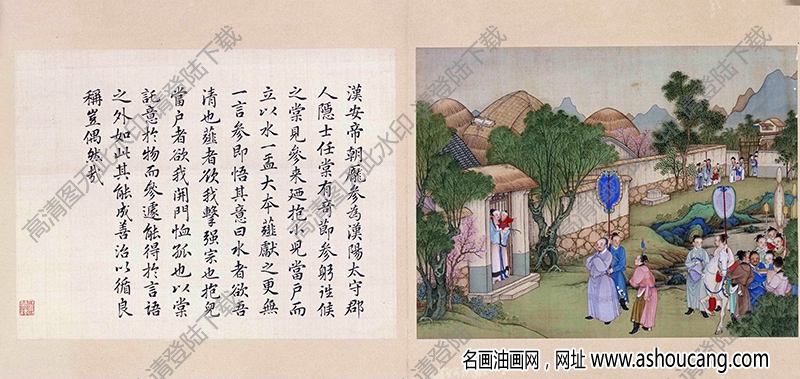 漢安帝朝龐參為漢陽太守郡
人隱士任棠有奇節參躬往候
之棠見參来迺抱小児當戶而
立以水一盂大本薤獻之更無
一言參即悟其意曰水者欲吾
清也薤者欲我擊强宗也抱児
當戶者欲我開門恤孤也以棠
託意於物而參遽能得於言語
之外如此其能成善治以循良
稱豈偶然哉
高清图无此水印 请登陆下载
名画油画网，网址 www.ashoucang.com